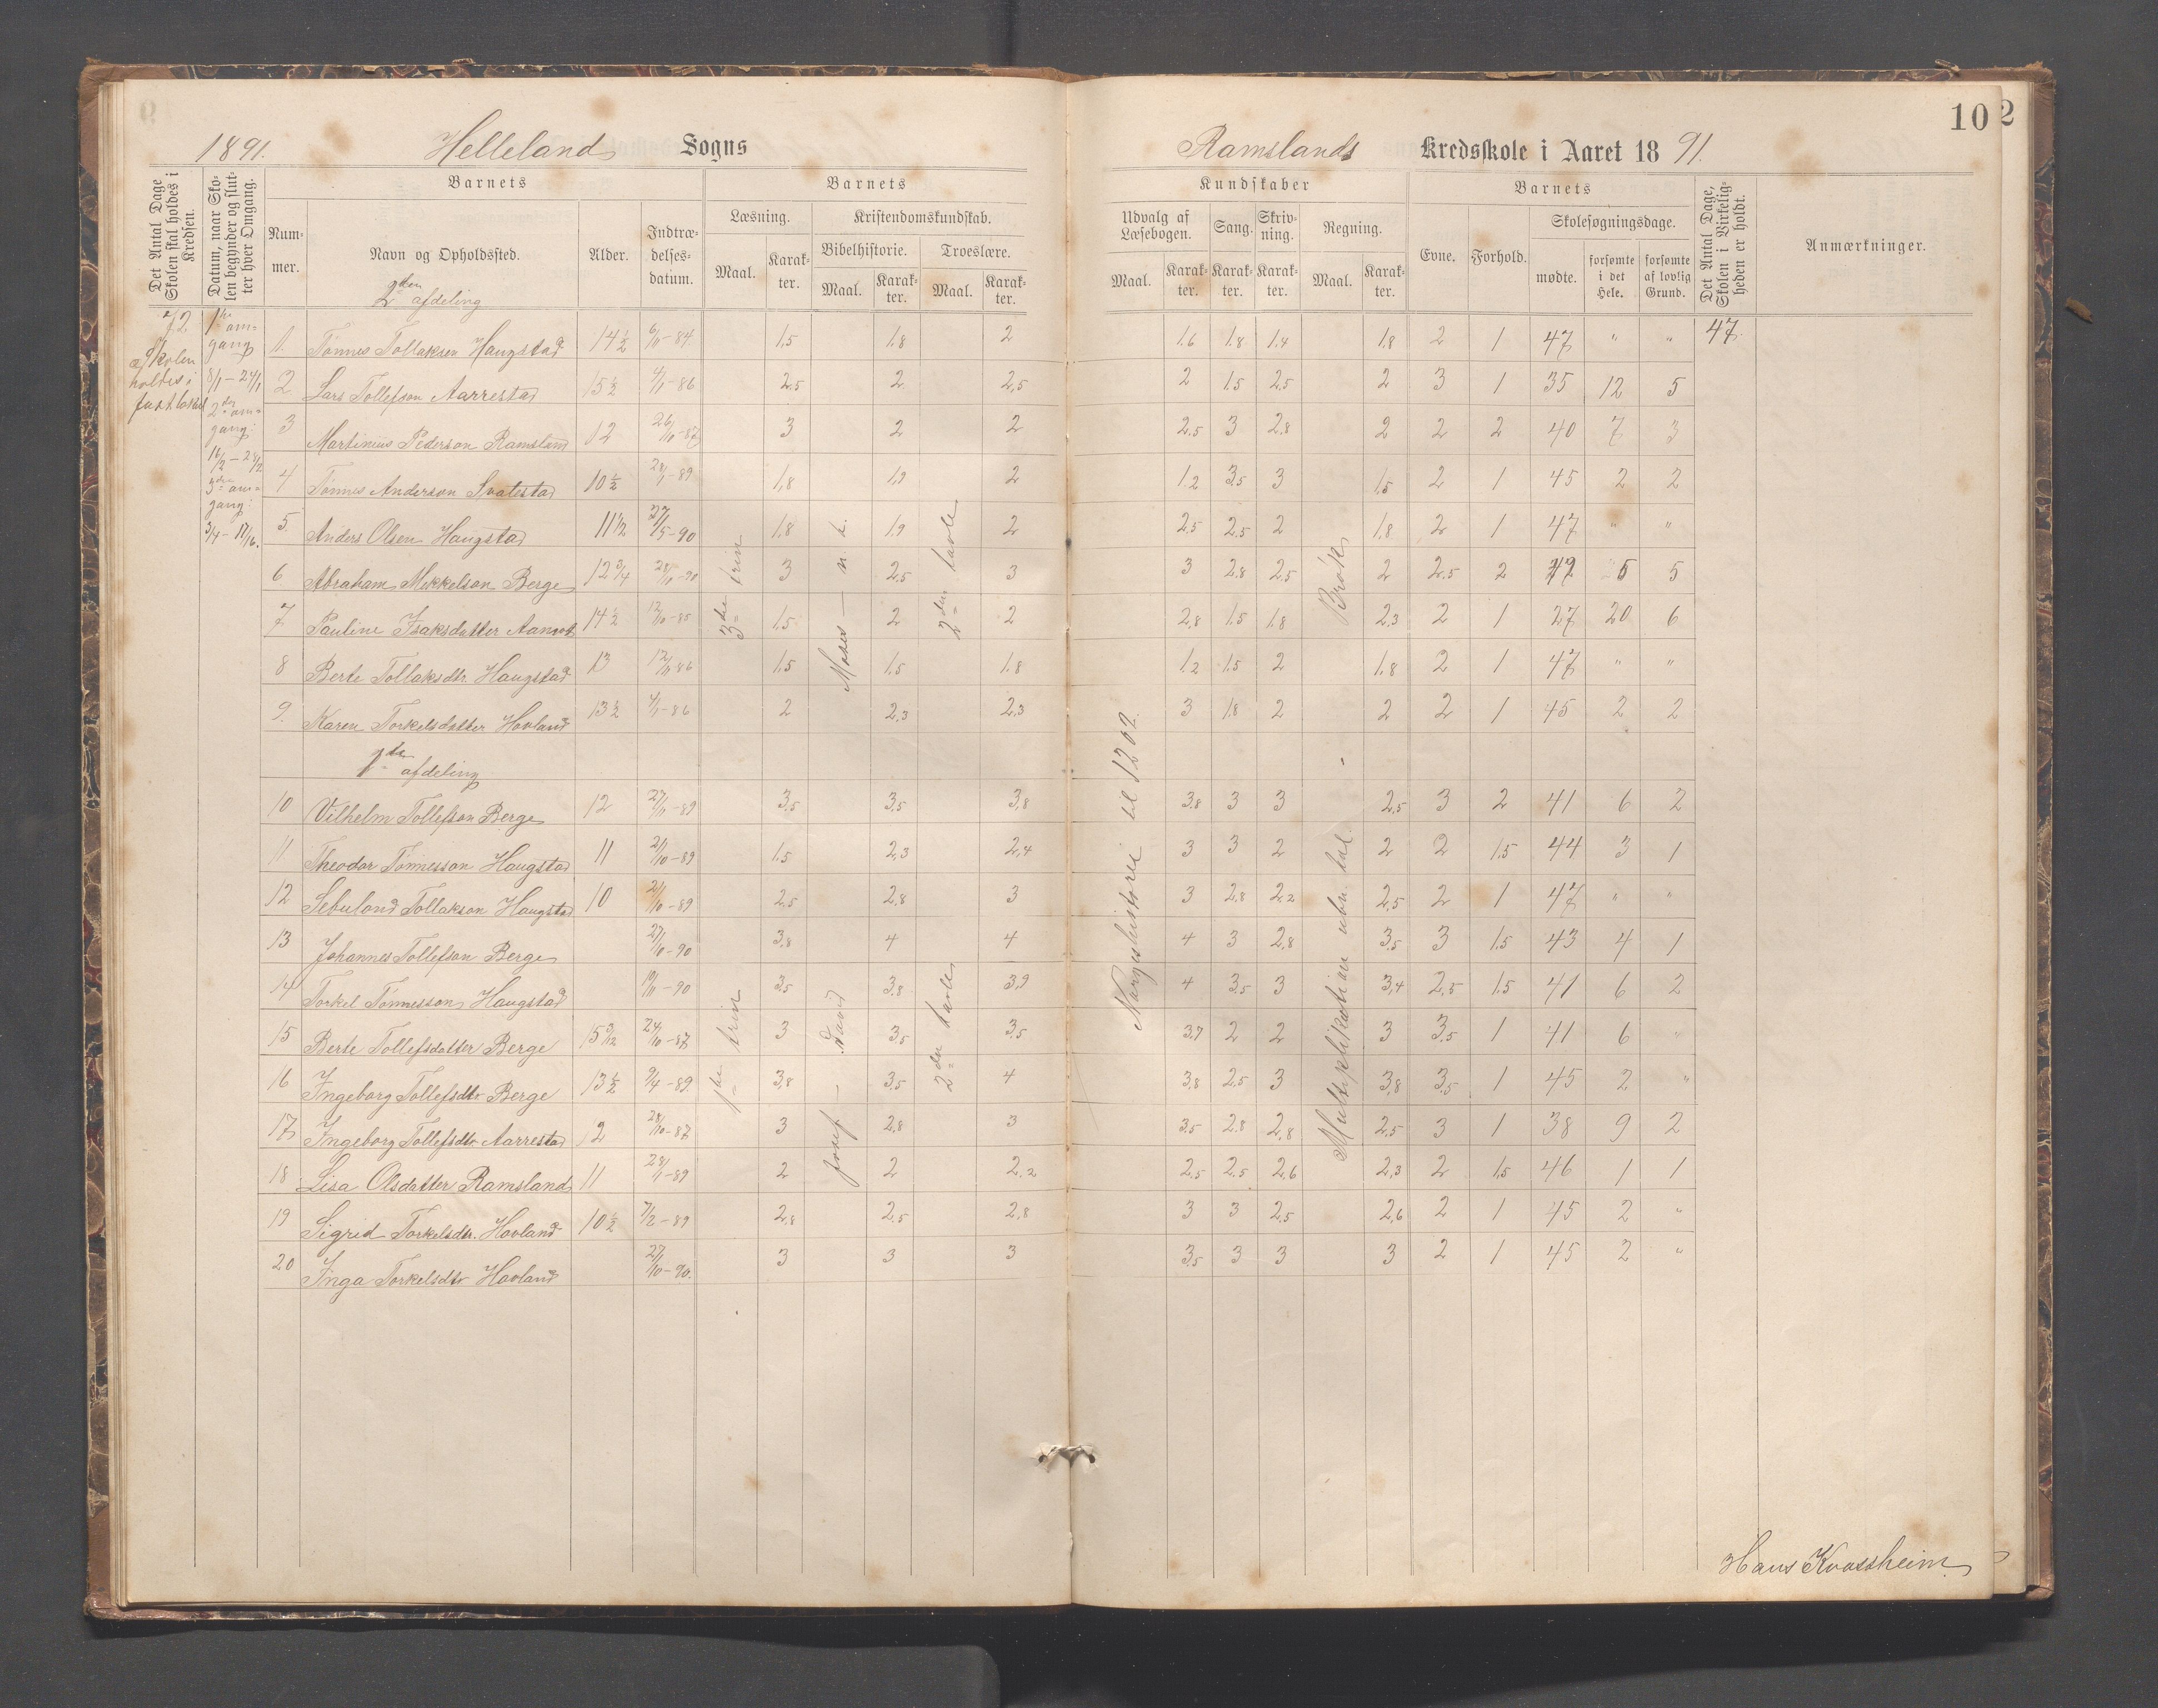 1891. Helleland Sogns
Det Antal Dage Skolen skal holdes i Kredsen.
Datum, naar Skolen begynder og slutter hver Omgang.
Barnets
Nummer.
Navn og Opholdssted.
Alder.
Indtrædelsesdatum.
Barnets
Læsning.
Maal.
Karakter.
Kristendomskundskab.
Bibelhistorie.
Maal.
Karakter.
Troeslære.
Maal.
Karakter.
Ramslands Kredsskole i Aaret 1891.
10
2
Kundskaber
Udvalg af Læsebogen.
Maal.
Karakter.
Sang.
Karakter.
Skrivning.
Karakter.
Regning.
Maal.
Karakter.
Barnets
Evne.
Forhold.
Skolesøgningsdage.
mødte.
forsømte i det Hele.
forsømte af lovlig Grund.
Det Antal Dage, Skolen i Virkeligheden er holdt.
Anmærkninger.
72
Skolen
holdes i
fast lokal
1ste om=
gang
8/1 – 24/1
2den om=
gang:
16/2 – 28/2
3die om=
gang:
3/4 – 17/16.
2den afdeling
1. Tønnes Tollaksen Haugstad 14 1/2 6/10-84 1,5 1,8 2 1.6 1.8 1.4 1.8 2 1 47 " " 47.
2 Lars Tollefson Aarrestad 15 1/2 4/1-86 2,5 2 2,5 2 1.5 2,5 2 3 1 35 12 5
3 Martinius Pederson Ramsland 12 26/10-87 3 2 2 2.5 3 2.8 2 2 2 40 7 3
4 Tønnes Anderson Svalestad 10 1/2 28/1-89 1,8 1,9 2 1.2 3.5 3 1.5 2 1 45 2 2
5 Anders Olsen Haugstad 11 1/2 27/5-90 1,8 1,9 2 2.5 2.5 2 1.8 2 1 47 " "
6 Abraham Mikkelson Berge 12 3/4 28/10-90 3 2,5 3 3 2.8 2.5 2 2.5 2 42 5 5
7 Pauline Isaksdatter 14 1/2 12/10-85 1,5 2 2 2,8 1.5 1.8 2.3 2 1 27 20 6
8 Berte Tollaksdtr. Haugstad 13 12/11 86 1,5 1,5 1,8 1.2 1.5 2 1.8 2 1 47 " "
9. Karen Torkelsdatter Hovland 13 1/2 4/1-86 2 2,3 2,3 3 1.8 2 2 2 1 45 2 2
3die trin
Moses – n. t.
2den tavle
Brøk
1ste afdeling
10 Vilhelm Tollefson Berge 12 27/11-89 3,5 3,5 3,8 3.8 3 3 2,5 3 2 41 6 2
11 Theodor Tønnesson Haugstad 11 21/10-89 1,5 2,3 2,4 3 3 2 2 2 1.5 44 3 1
12 Sebulond Tollakson Haugstad 10 21/10-89 2,5 2,8 3 3 2,8 2,2 2,5 2 1 47 " "
13 Johannes Tollefson Berge 27/10-90 3,8 4 4 4 3 2,8 3,5 3 1.5 43 4 1
14 Torkel Tønnesson Haugstad 19/11-90 3,5 3,8 3,9 4 3,5 3 3,4 2,5 1.5 41 6 2
15 Berte Tollefsdatter Berge 15 3/12 24/10-87 3 3,5 3,5 3.7 2 2 3 3.5 1 41 6 "
16 Ingeborg Tollefsdtr Berge 13 1/2 9/4-89 3,8 3,5 4 3,8 2,5 3 3,8 3.5 1 45 2 "
17 Ingeborg Tollefsdtr Aarrestad 12 28/10-87 3 2,8 3 3,5 2.8 2,8 2,5 3 1 38 9 2
18 Lisa Olsdatter Ramsland 11 28/1-89 2 2 2,2 2,5 2,5 2,6 2,3 2 1,5 46 1 1
19 Sigrid Torkelsdtr. Hovland 10 1/2 7/2-89 2,8 2,5 2,8 3 3 2,5 2,6 2 1 45 2 "
20 Inga Torkelsdtr Hovland 27/10-90. 3 3 3 3,5 3 3 3 2 1 45 2 "
1ste trin
Josef – David
2den tavle
Norgeshistorie til 1202.
Multiplikation ubn. tal.
Hans Kvassheim